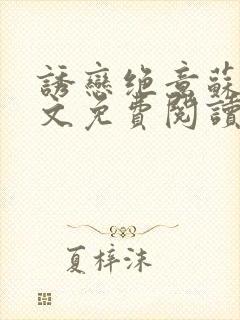 誘戀绝意蘇
文免費閱讀
夏梓沫